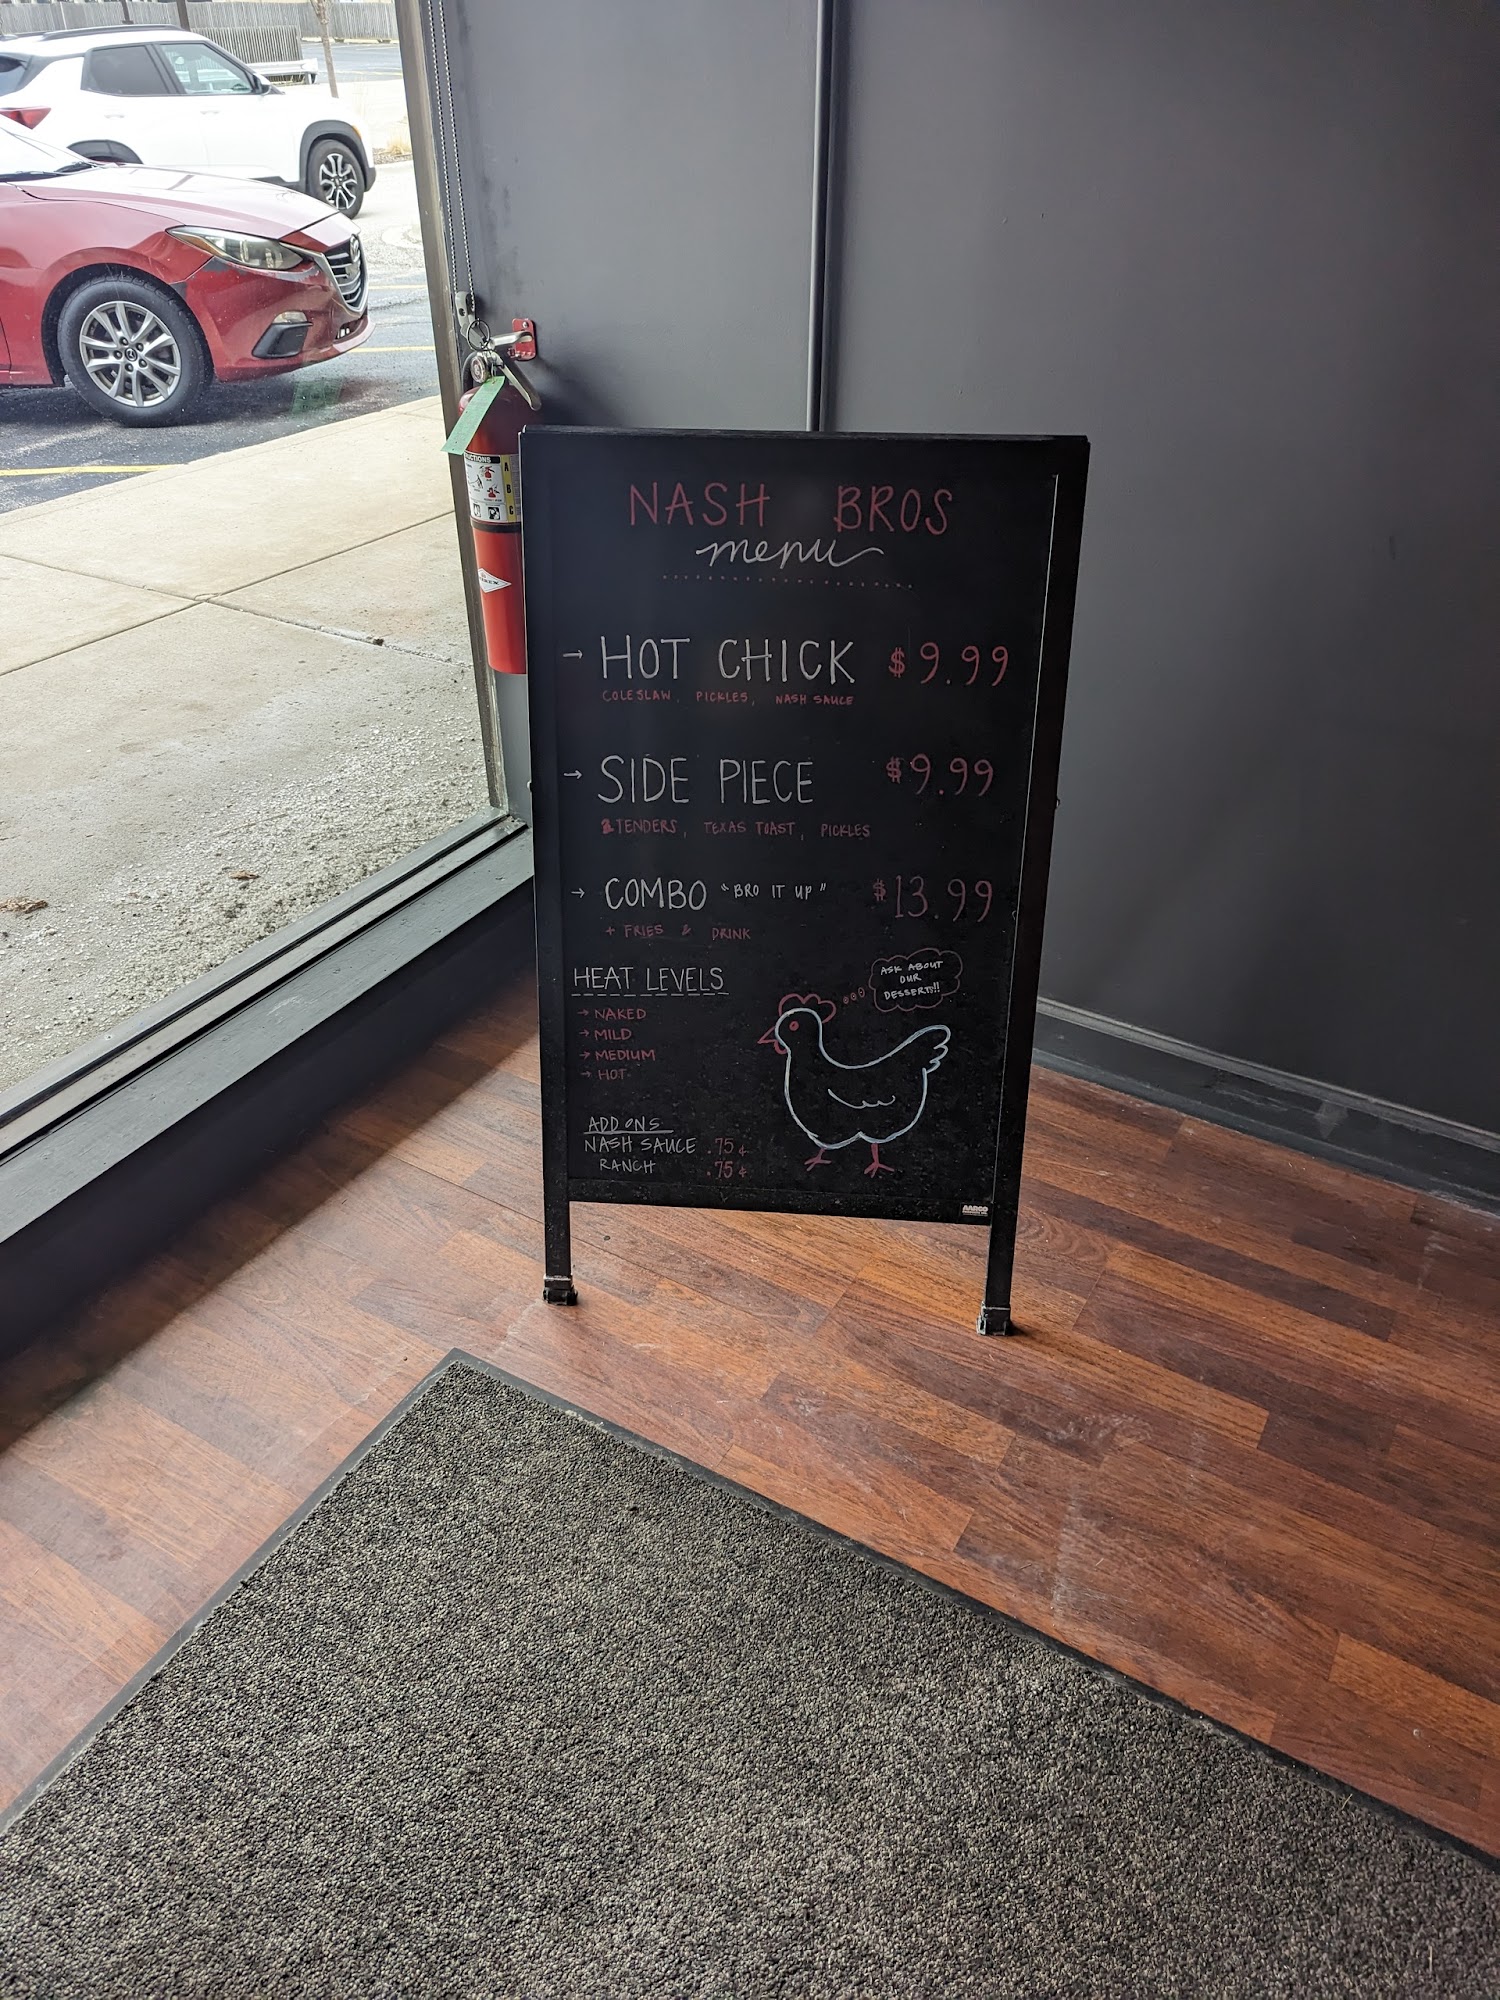 NASH BROS
menu
→ HOT CHICK $9.99
COLESLAW, PICKLES, NASH SAUCE
→ SIDE PIECE $9.99
2 TENDERS, TEXAS TOAST, PICKLES
→ COMBO "BRO IT UP" $13.99
+ FRIES & DRINK
HEAT LEVELS
→ NAKED
→ MILD
→ MEDIUM
→ HOT
ASK ABOUT
OUR
DESSERTS!!
ADD ONS
NASH SAUCE .75¢
RANCH .75¢
AARCO
A
B
C